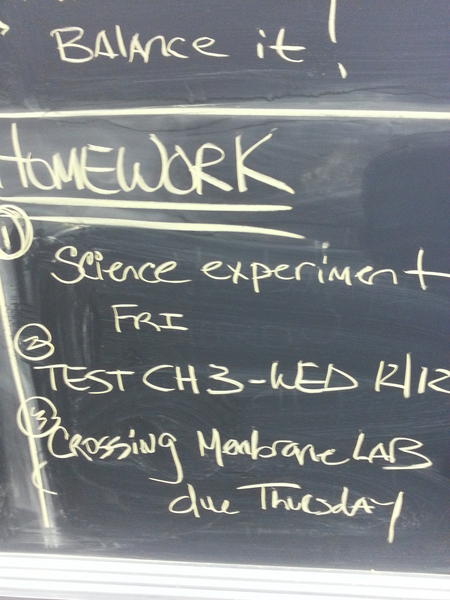 BALANCE it!
HOMEWORK
1
Science experiment
FRI
2
TEST CH 3-WED 12/12
3
CROSSING Membrane LAB
due THURSDAY